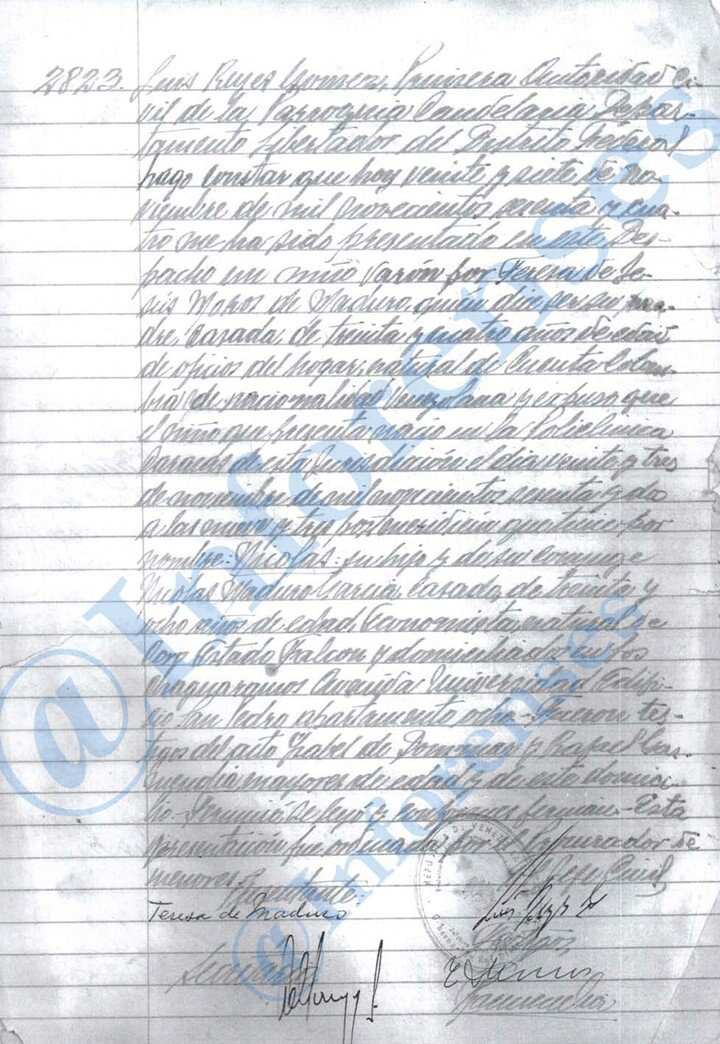 2823. Luis Reyes Primera Autoridad Ci-
vil de la Parroquia Candelaria Depar-
tamento Libertador del Distrito Federal
hago constar que hoy veinte y siete de no-
viembre de mil novecientos sesenta y cua-
tro me ha sido presentado en este Des-
pacho un niño varón por Teresa de Je-
sús Moros de Maduro, quien dice ser su ma-
dre, casada, de treinta y cuatro años de edad
de oficios del hogar, natural de Cúcuta Colom-
bia, de nacionalidad Venezolana y expuso que
el niño que presenta nació en la Policlínica
Caracas de esta Jurisdicción el día veinte y tres
de noviembre de mil novecientos sesenta y dos
a las y tres post-meridiem que tiene por
nombre: Nicolás: su hijo y de su cónyuge
Nicolás Maduro García, casado, de treinta y
ocho años de edad, Economista, natural de
Coro Estado Falcón y domiciliado en Los
Chaguaramos Avenida Universitaria Edifi-
cio San Pedro apartamento ocho.- Fueron tes-
tigos del acto Isabel de y Rafael
mayores de edad y de este domici-
lio.- Terminó se leyó y conformes firman.- Esta
presentación fue ordenada por el Procurador de
menores. El Jefe Civil,
Presentante:
Teresa de Maduro
Testigos
Secretario
REPUBLICA DE VENEZUELA
@Inforenses
@Inforenses